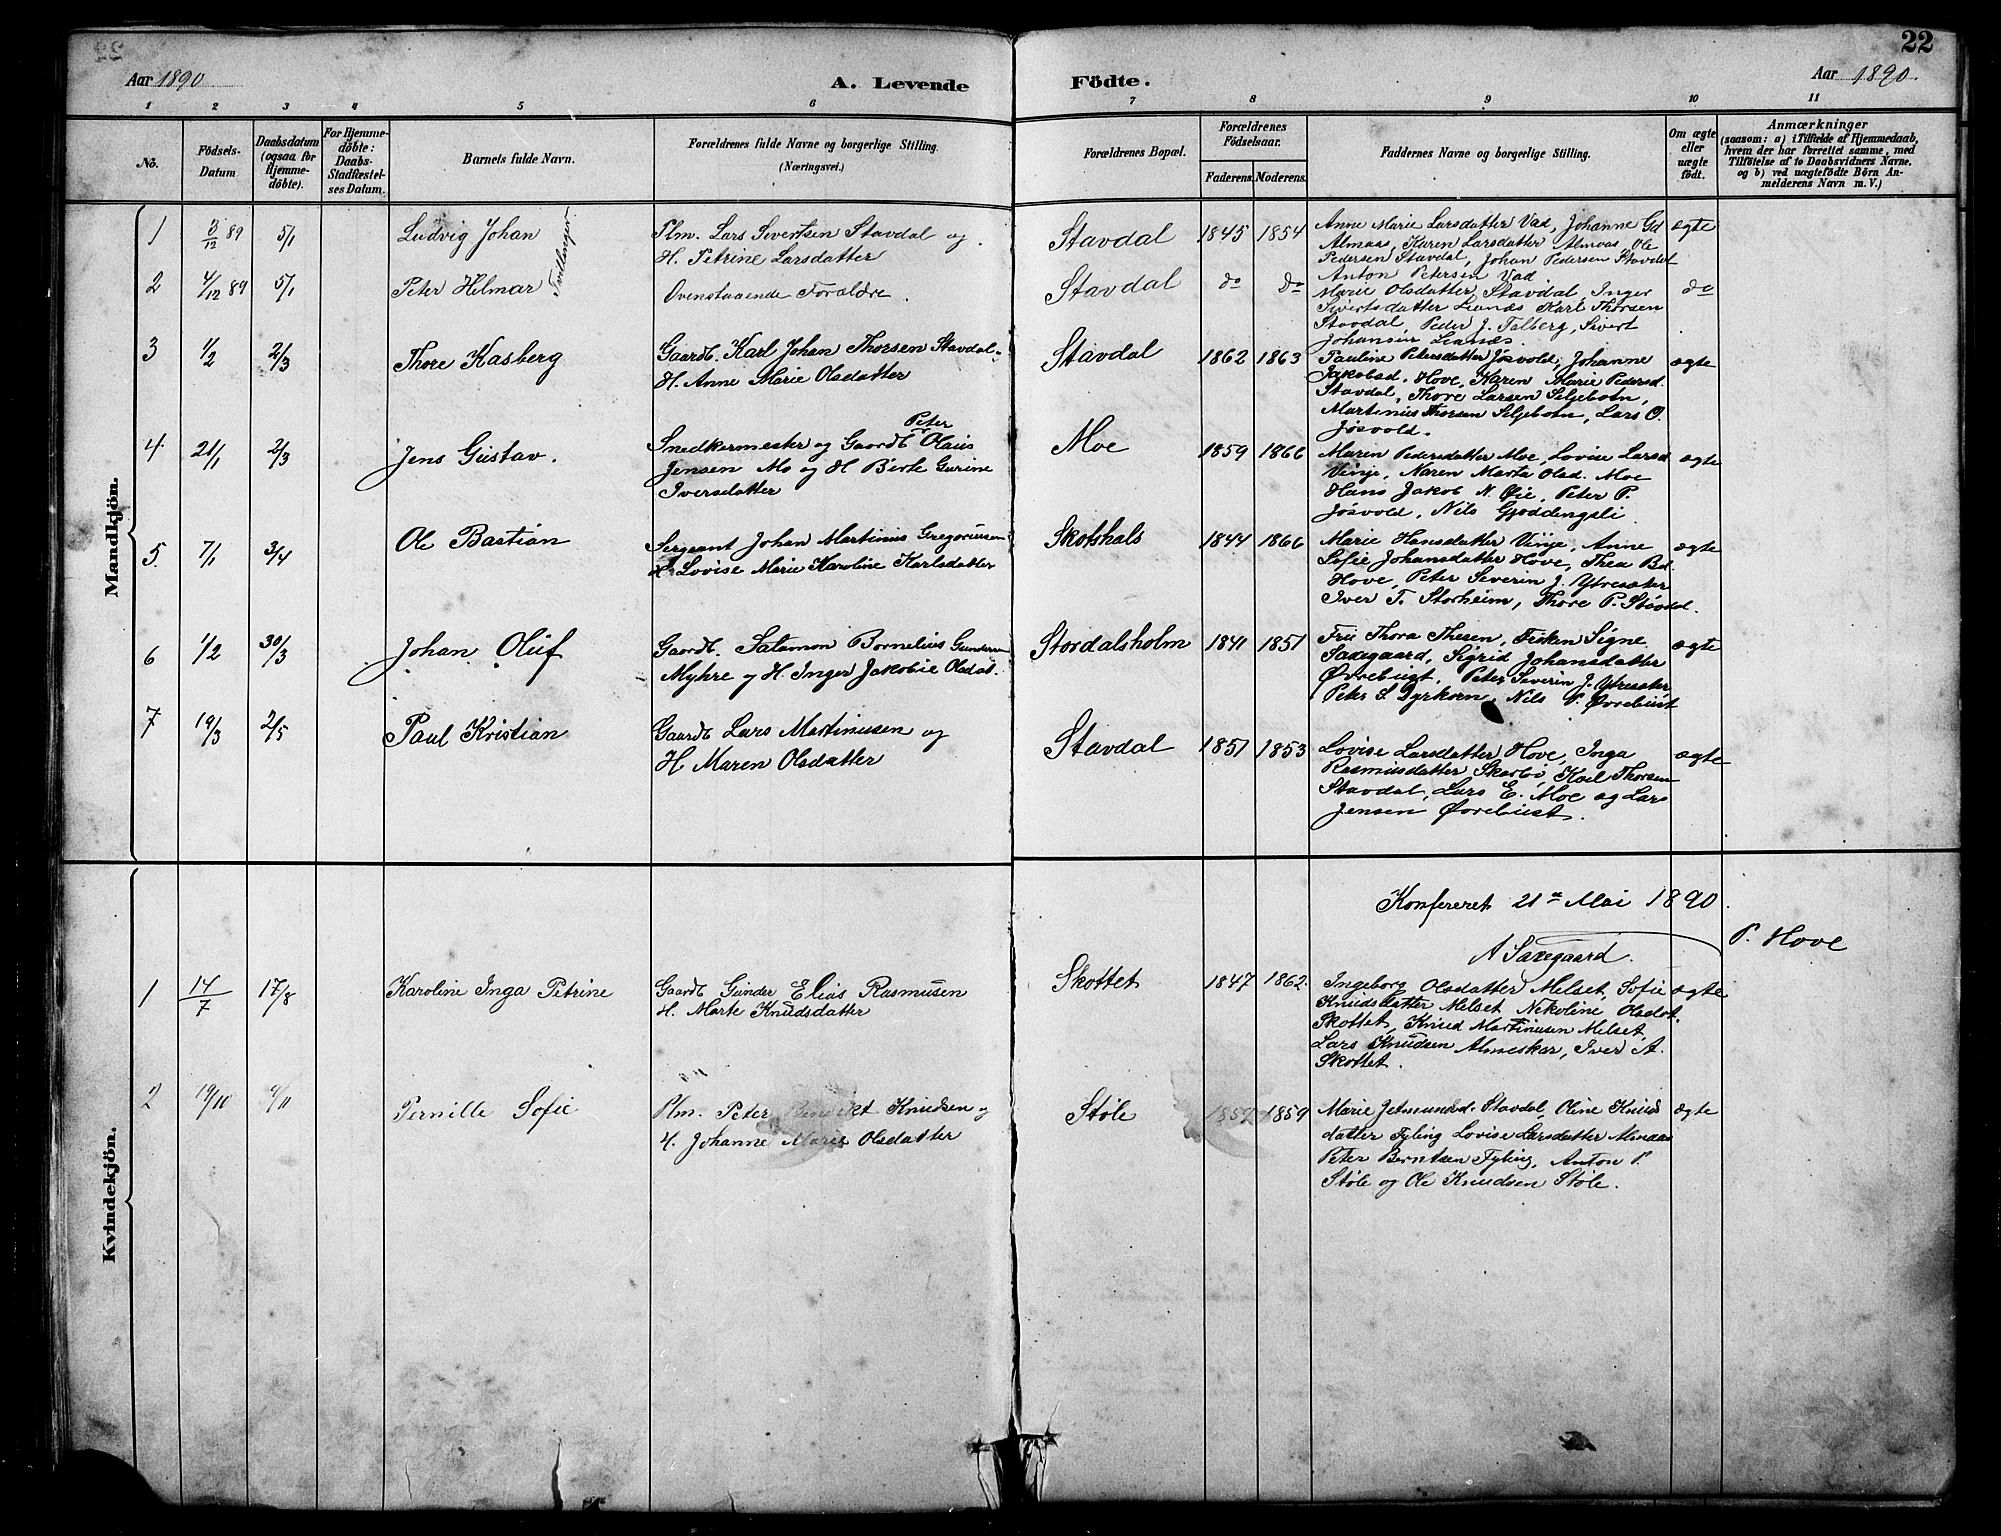 22
Aar 1890
A. Levende Födte.
Aar 1890.
1 2 3 4 5 6 7 8 9 10 11
No.
Födsels-
Datum
Daabsdatum
(ogsaa for
Hjemme-
döbte).
For Hjemme-
döbte:
Daabs-
Stadfæstel-
ses Datum.
Barnets fulde Navn.
Forældrenes fulde Navne og borgerlige Stilling.
(Næringsvei.)
Forældrenes Bopæl.
Forældrenes
Födselsaar.
Faderens. Moderens.
Faddernes Navne og borgerlige Stilling.
Om ægte
eller
uægte
födt.
Anmærkninger
(saasom: a) i Tilfælde af Hjemmedaab,
hvem der har forrettet samme, med
Tilföielse af to Daabsvidners Navne.
og b) ved uægtefödte Börn An-
melderens Navn m. V.)
Mandkjön.
1 3/12 89 5/1 Ludvig Johan
Tvillinger
Plm. Lars Sivertsen Stavdal og
H. Petrine Larsdatter
Stavdal 1845 1854
Anne Marie Larsdatter Vad, Johanne Gd
Almaas, Karen Larsdatter Almaas, Ole
Pedersen Stavdal, Johan Pedersen Stavdal
Anton Petersen Vad
ægte
2 4/12 89 5/1 Peter Hilmar
Ovenstaaende Forældre.
Stavdal do do
Marie Olsdatter Stavdal, Inger
Sivertsdatter Lianæs Karl Thorsen
Stavdal, Peder J. Talberg, Sivert
Johansen Lianæs.
do
3 1/2 2/3 Thore Kasberg
Gaardb. Karl Johan Thorsen Stavdal
H. Anne Marie Olsdatter
Stavdal 1862 1863
Pauline Petersdatter Jøsvold, Johanne
Jakobsd. Hove, Karen Marie Pedersd.
Stavdal, Thore Larsen Seljebotn,
Martinus Thorsen Seljebotn, Lars O.
Jøsvold.
ægte
4 21/1 2/3 Jens Gustav.
Peter
Snedkermester og Gaardb Olaus
Jensen Mo og H Berte Gurine
Iversdatter
Moe 1859 1866
Maren Pedersdatter Moe, Lovise Larsd
Vinje, Karen Marta Olsd. Moe
Hans Jakob N. Øie, Peter P.
Jøsvold, Nils Gjøddingsli.
ægte
5 7/1 3/4 Ole Bastian
Sergeant Johan Martinus Gregoriussen
H. Lovise Marie Karoline Karlsdatter
Skothals 1844 1866
Marie Hansdatter Vinje, Anne
Sofie Johansdatter Hove, Thea Bd.
Hove, Peter Severin J. Ytresæter
Iver T. Storheim, Thore P. Stavdal.
ægte
6 1/2 30/3 Johan Oluf
Gaardb. Salamon Bornelius Gundersen
Myhre og H. Inger Jakobie Olsdat.
Stordalsholm 1841 1851
Fru Thora Thesen, Frøken Signe
Saxegaard, Sigrid Johansdatter
Øvrebust, Peter Severin J. Ytresæter
Peter S Dyrkorn, Nils P. Øvrebust
ægte
7 19/3 2/5 Paul Kristian
Gaardb Lars Martinusen og
H. Maren Olsdatter
Stavdal 1851 1853
Lovise Larsdatter Hove, Inga
Rasmusdatter Skarbø, Karl Thorsen
Stavdal, Lars E. Moe og Lars
Jensen Øvrebust.
ægte
Konfereret 21de Mai 1890
A Saxegaard.
P. Hove
Kvindekjön.
1 14/7 17/8 Karoline Inga Petrine
Gaardb Gunder Elias Rasmusen
H. Marte Knudsdatter
Skottet 1847 1862.
Ingeborg Olsdatter Melset, Sofie
Knudsdatter Melset Nikoline Olsdat.
Skottet, Knud Martinusen Melset,
Lars Knudsen Almeskar, Iver A.
Skottet.
ægte
2 19/10 9/11 Pernille Sofie
Plm. Peter Benedikt Knudsen og
H. Johanne Marie Olsdatter
Støle 1859
Marie Jetmundsd. Stavdal, Oline Knuds
datter Fyling Lovise Larsdatter Almaas
Peter Berntsen Fyling, Anton P.
Støle og Ole Knudsen Støle.
ægte